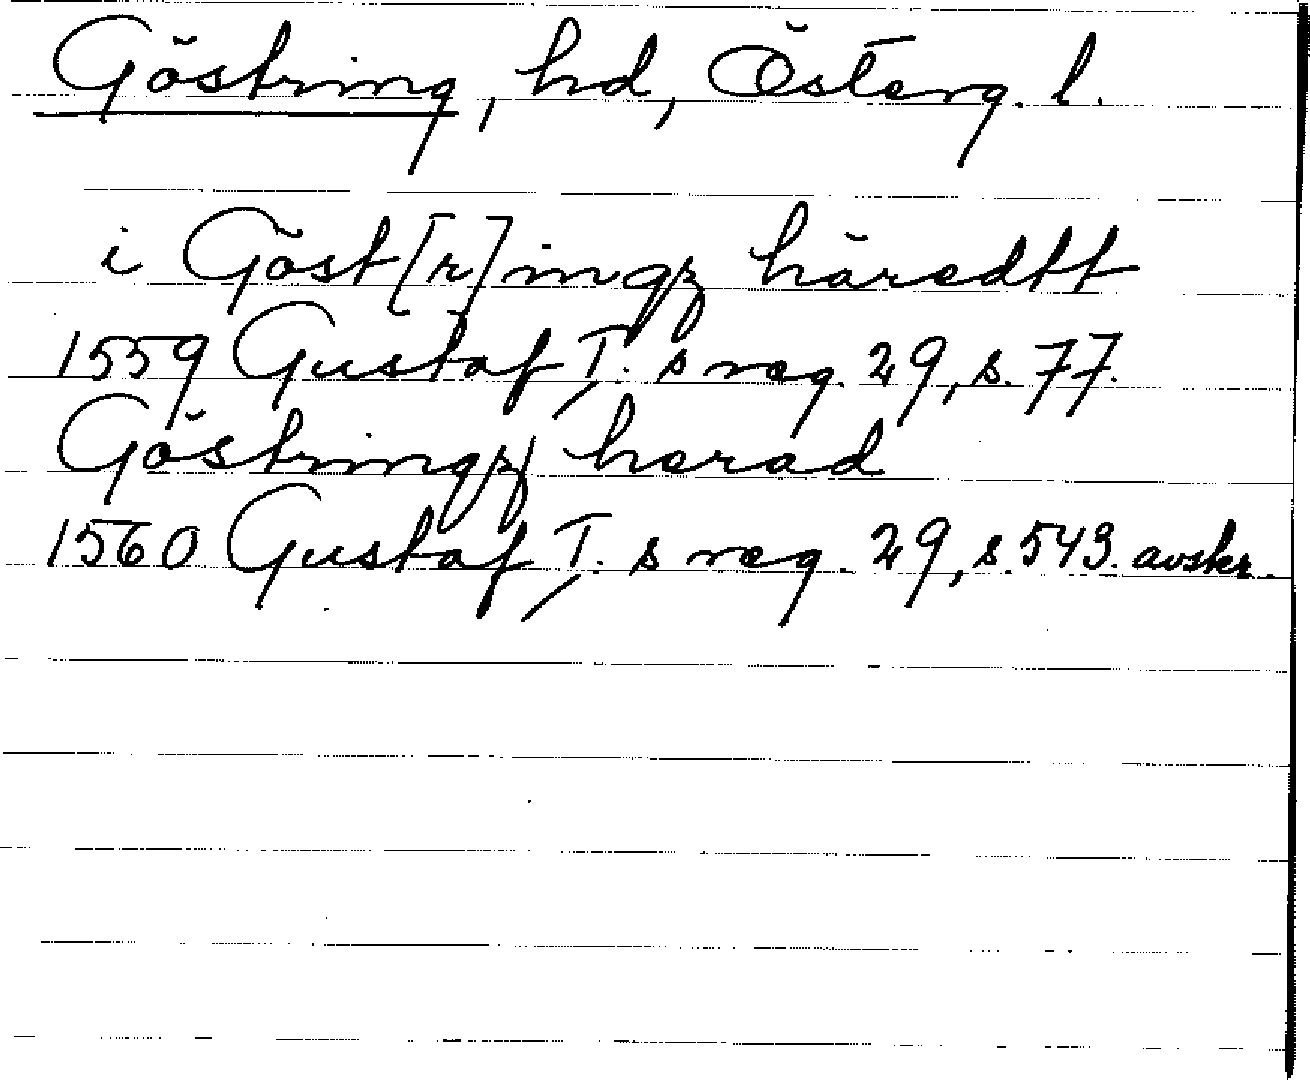 Göstring, hd, Österg. l.
i Göst[r]ingz häredtt
1559 Gustaf I. s reg. 29, s. 77.
Göstringz harad
1560 Gustaf I. s reg. 29, s. 543. avskr.